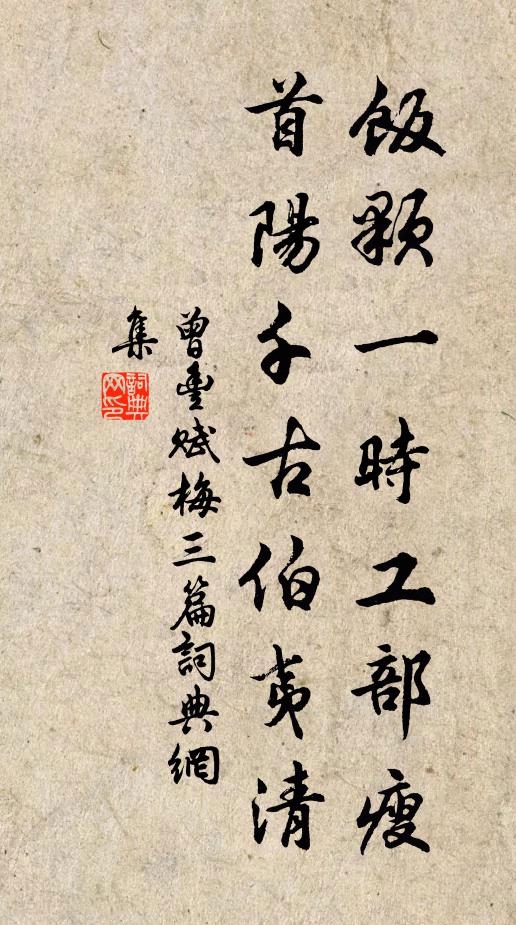 飯顆一時工部瘦
首陽千古伯夷清
曾豐賦梅三篇詞典網
集
詞典網印